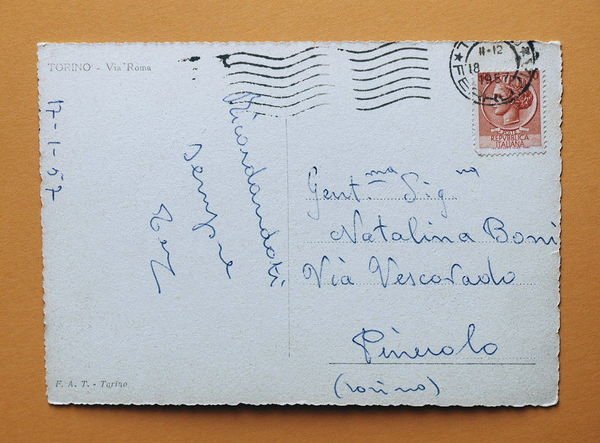 TORINO - Via Roma
17-1-57
Ricordandoti
sempre
F. A. T. - Torino
11-12
18
1957
FERR
POSTE
REPVBBLICA
ITALIANA
Gent.ma Sig.na
Natalina Boni
Via Vescovado
Pinerolo
(Torino)